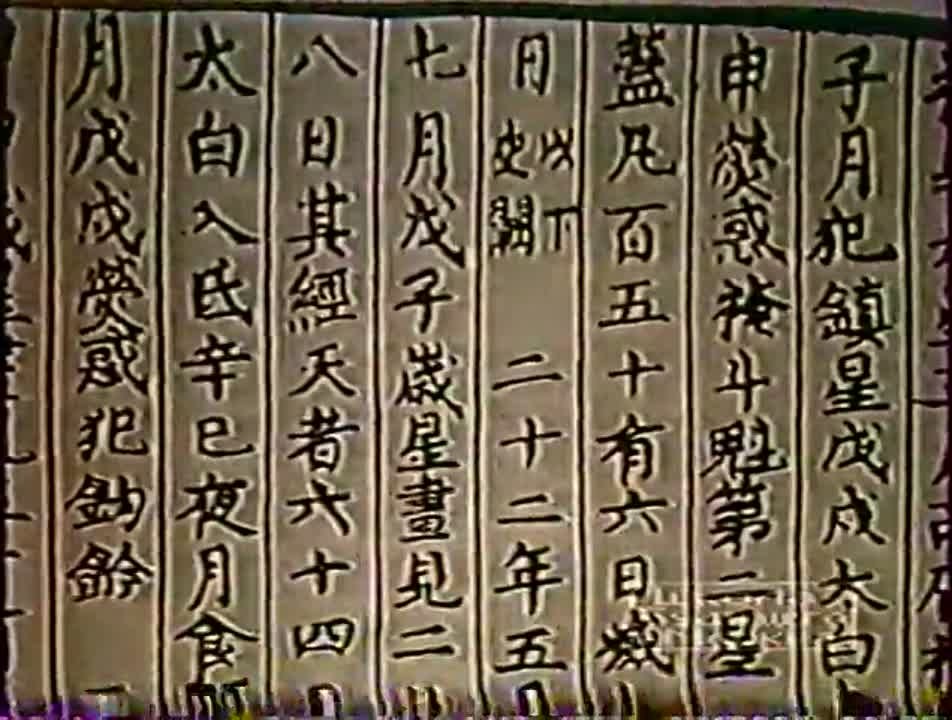 子月犯鎮星戊戌太白
申熒惑掩斗魁第二星
蓋凡百五十有六日滅
日以下史闕 二十二年五
七月戊子歲星晝見二
八日其經天者六十四
太白入氐辛巳夜月食
月戊戌熒惑犯鈎鈐